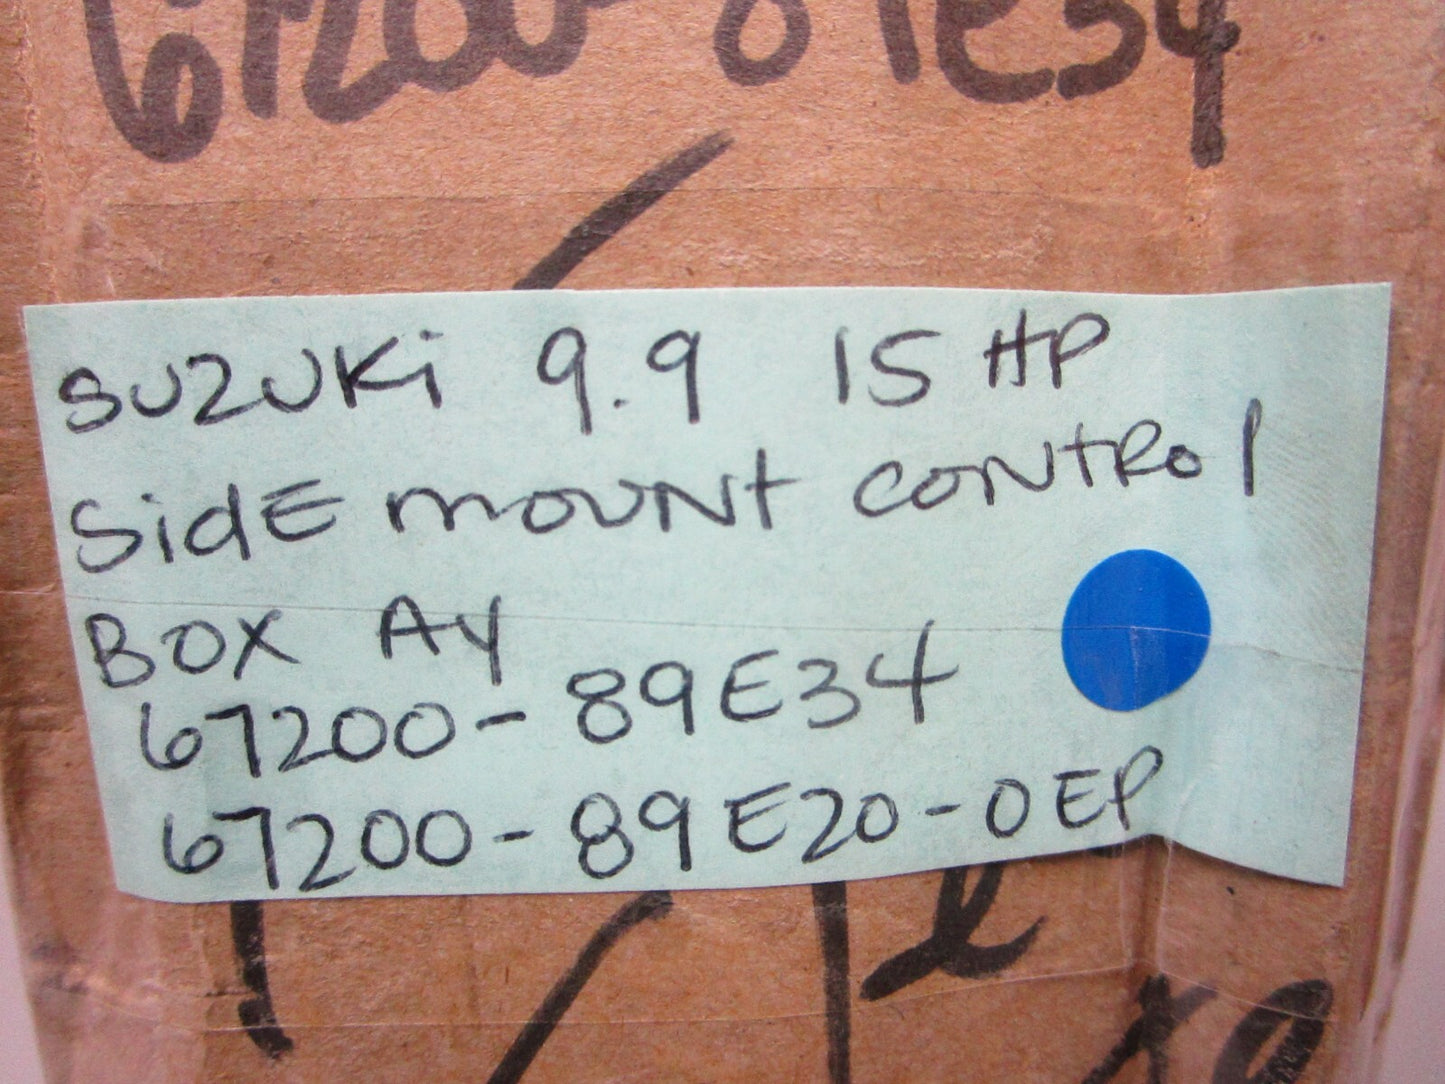 67200-89E34
SUZUKi 9.9 15 HP
SidE mOUNt CONtROl
BOX AY
67200-89E34
67200-89E20-0EP